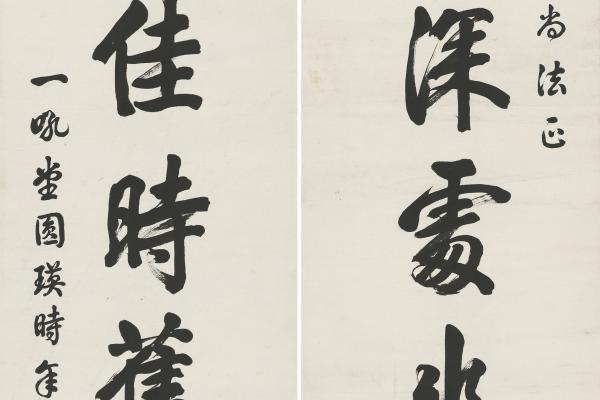 尚法正
深處
佳時
一吼堂圓瑛時年